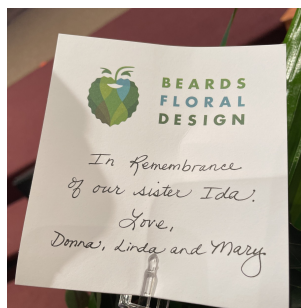 BEARDS
FLORAL
DESIGN
In Remembrance
of our sister Ida.
Love,
Donna, Linda and Mary